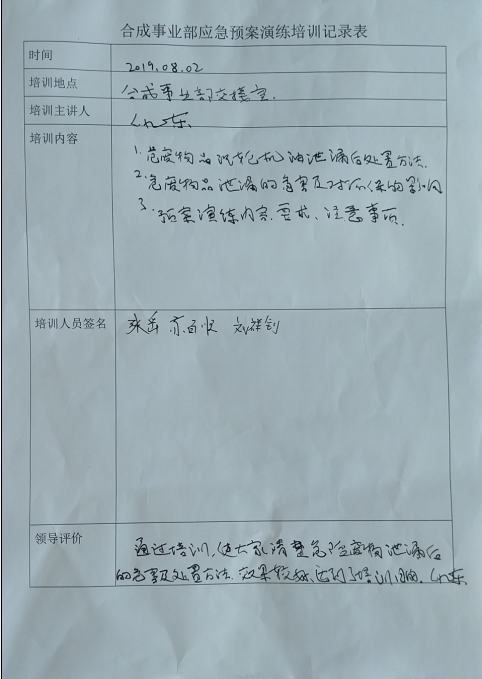 合成事业部应急预案演练培训记录表
时间
2019.08.02
培训地点
合成事业部交接室.
培训主讲人
培训内容
1. 危废物品 机油泄漏后处置方法.
2. 危废物品泄漏的危害及对环保的影响
3. 预案演练内容.要求、注意事项.
培训人员签名
张岳 刘祥钊
领导评价
通过培训,使大家清楚危险废物泄漏后
的危害及处置方法.效果较好,达到了培训目的.